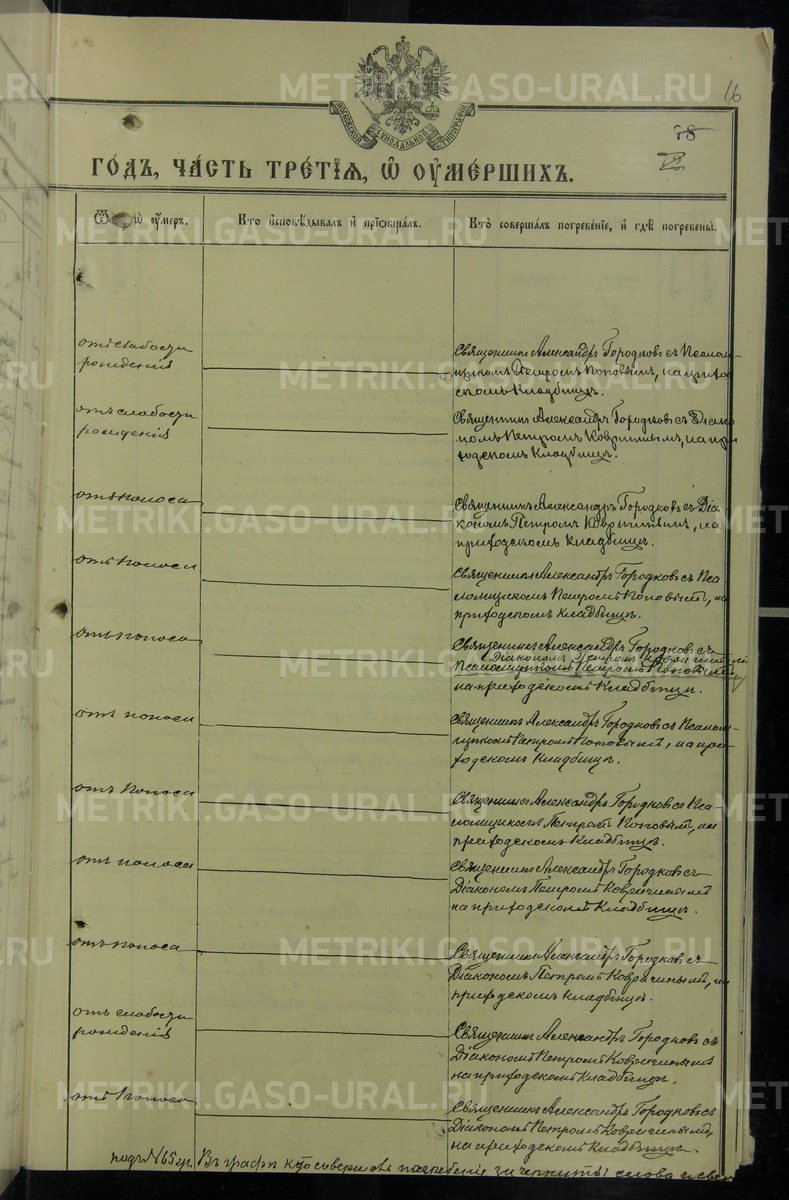 16
78
МОСКОВСКОЙ СѴНОДАЛЬНОЙ ТИПОГРАФІИ
ГОДЪ, ЧАСТЬ ТРЕТІЯ, Ѡ ОУМЕРШИХЪ.
оумеръ.
Кто исповѣдывалъ и пріобщалъ.
Кто совершалъ погребеніе, и гдѣ погребены.
отъ слабости
рожденія
Священникъ Александръ Городковъ съ Псалом-
щикомъ Петромъ Поповымъ, на прихо
скомъ Кладбищѣ.
отъ слабости
рожденія
Священникъ Александръ Городковъ съ Діако
номъ Петромъ, на при
ходскомъ Кладбищѣ.
отъ поноса
Священникъ Александръ Городковъ съ Діа
кономъ Петромъ, на
приходскомъ Кладбищѣ.
отъ поноса
Священникъ Александръ Городковъ съ Пса-
ломщикомъ Петромъ Поповымъ, на
приходскомъ Кладбищѣ.
отъ поноса
Священникъ Александръ Городковъ съ
Діакономъ Петромъ
Псаломщикомъ Петромъ Поповымъ
на приходскомъ Кладбищѣ.
отъ поноса
Священникъ Александръ Городковъ съ Псалом-
щикомъ Петромъ Поповымъ, на при-
ходскомъ Кладбищѣ.
отъ поноса
Священникъ Александръ Городковъ съ Пса-
ломщикомъ Петромъ Поповымъ, на
приходскомъ Кладбищѣ.
отъ поноса
Священникъ Александръ Городковъ съ
Діакономъ Петромъ
на приходскомъ Кладбищѣ.
отъ поноса
Священникъ Александръ Городковъ съ
Діакономъ Петромъ, на
приходскомъ Кладбищѣ.
отъ слабости
рожденія
Священникъ Александръ Городковъ съ
Діакономъ Петромъ
на приходскомъ Кладбищѣ.
отъ поноса
Священникъ Александръ Городковъ съ
Діакономъ Петромъ,
на приходскомъ Кладбищѣ.
подъ № 65 Въ графѣ кто совершалъ погребеніе зачеркнуты слова
METRIKI.GASO-URAL.RU